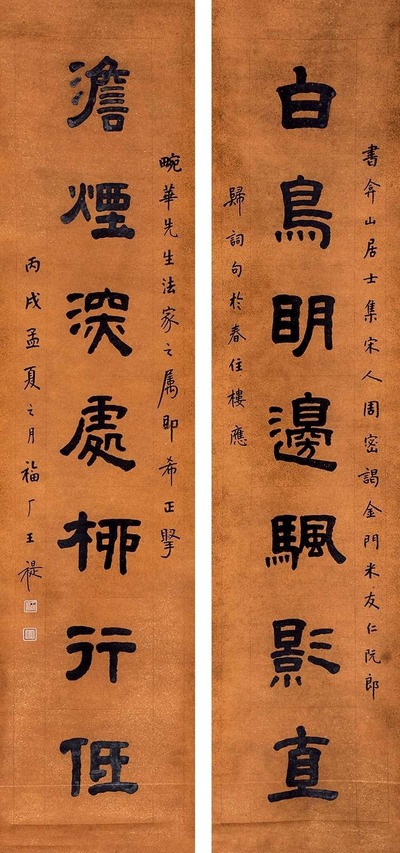 書弇山居士集宋人周密謁金門米友仁阮郎
白鳥眀邊颿影直
歸詞句於春住樓應
畹華先生法家之属即希正擥
澹煙深處桺行低
丙戌孟夏之月福厂王禔